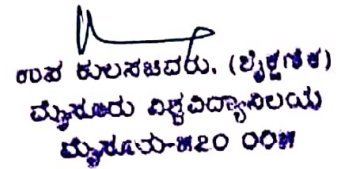 ಉಪ ಕುಲಸಚಿವರು, (ಶೈಕ್ಷಣಿಕ)
ಮೈಸೂರು ವಿಶ್ವವಿದ್ಯಾನಿಲಯ
ಮೈಸೂರು-೫೭೦ ೦೦೫